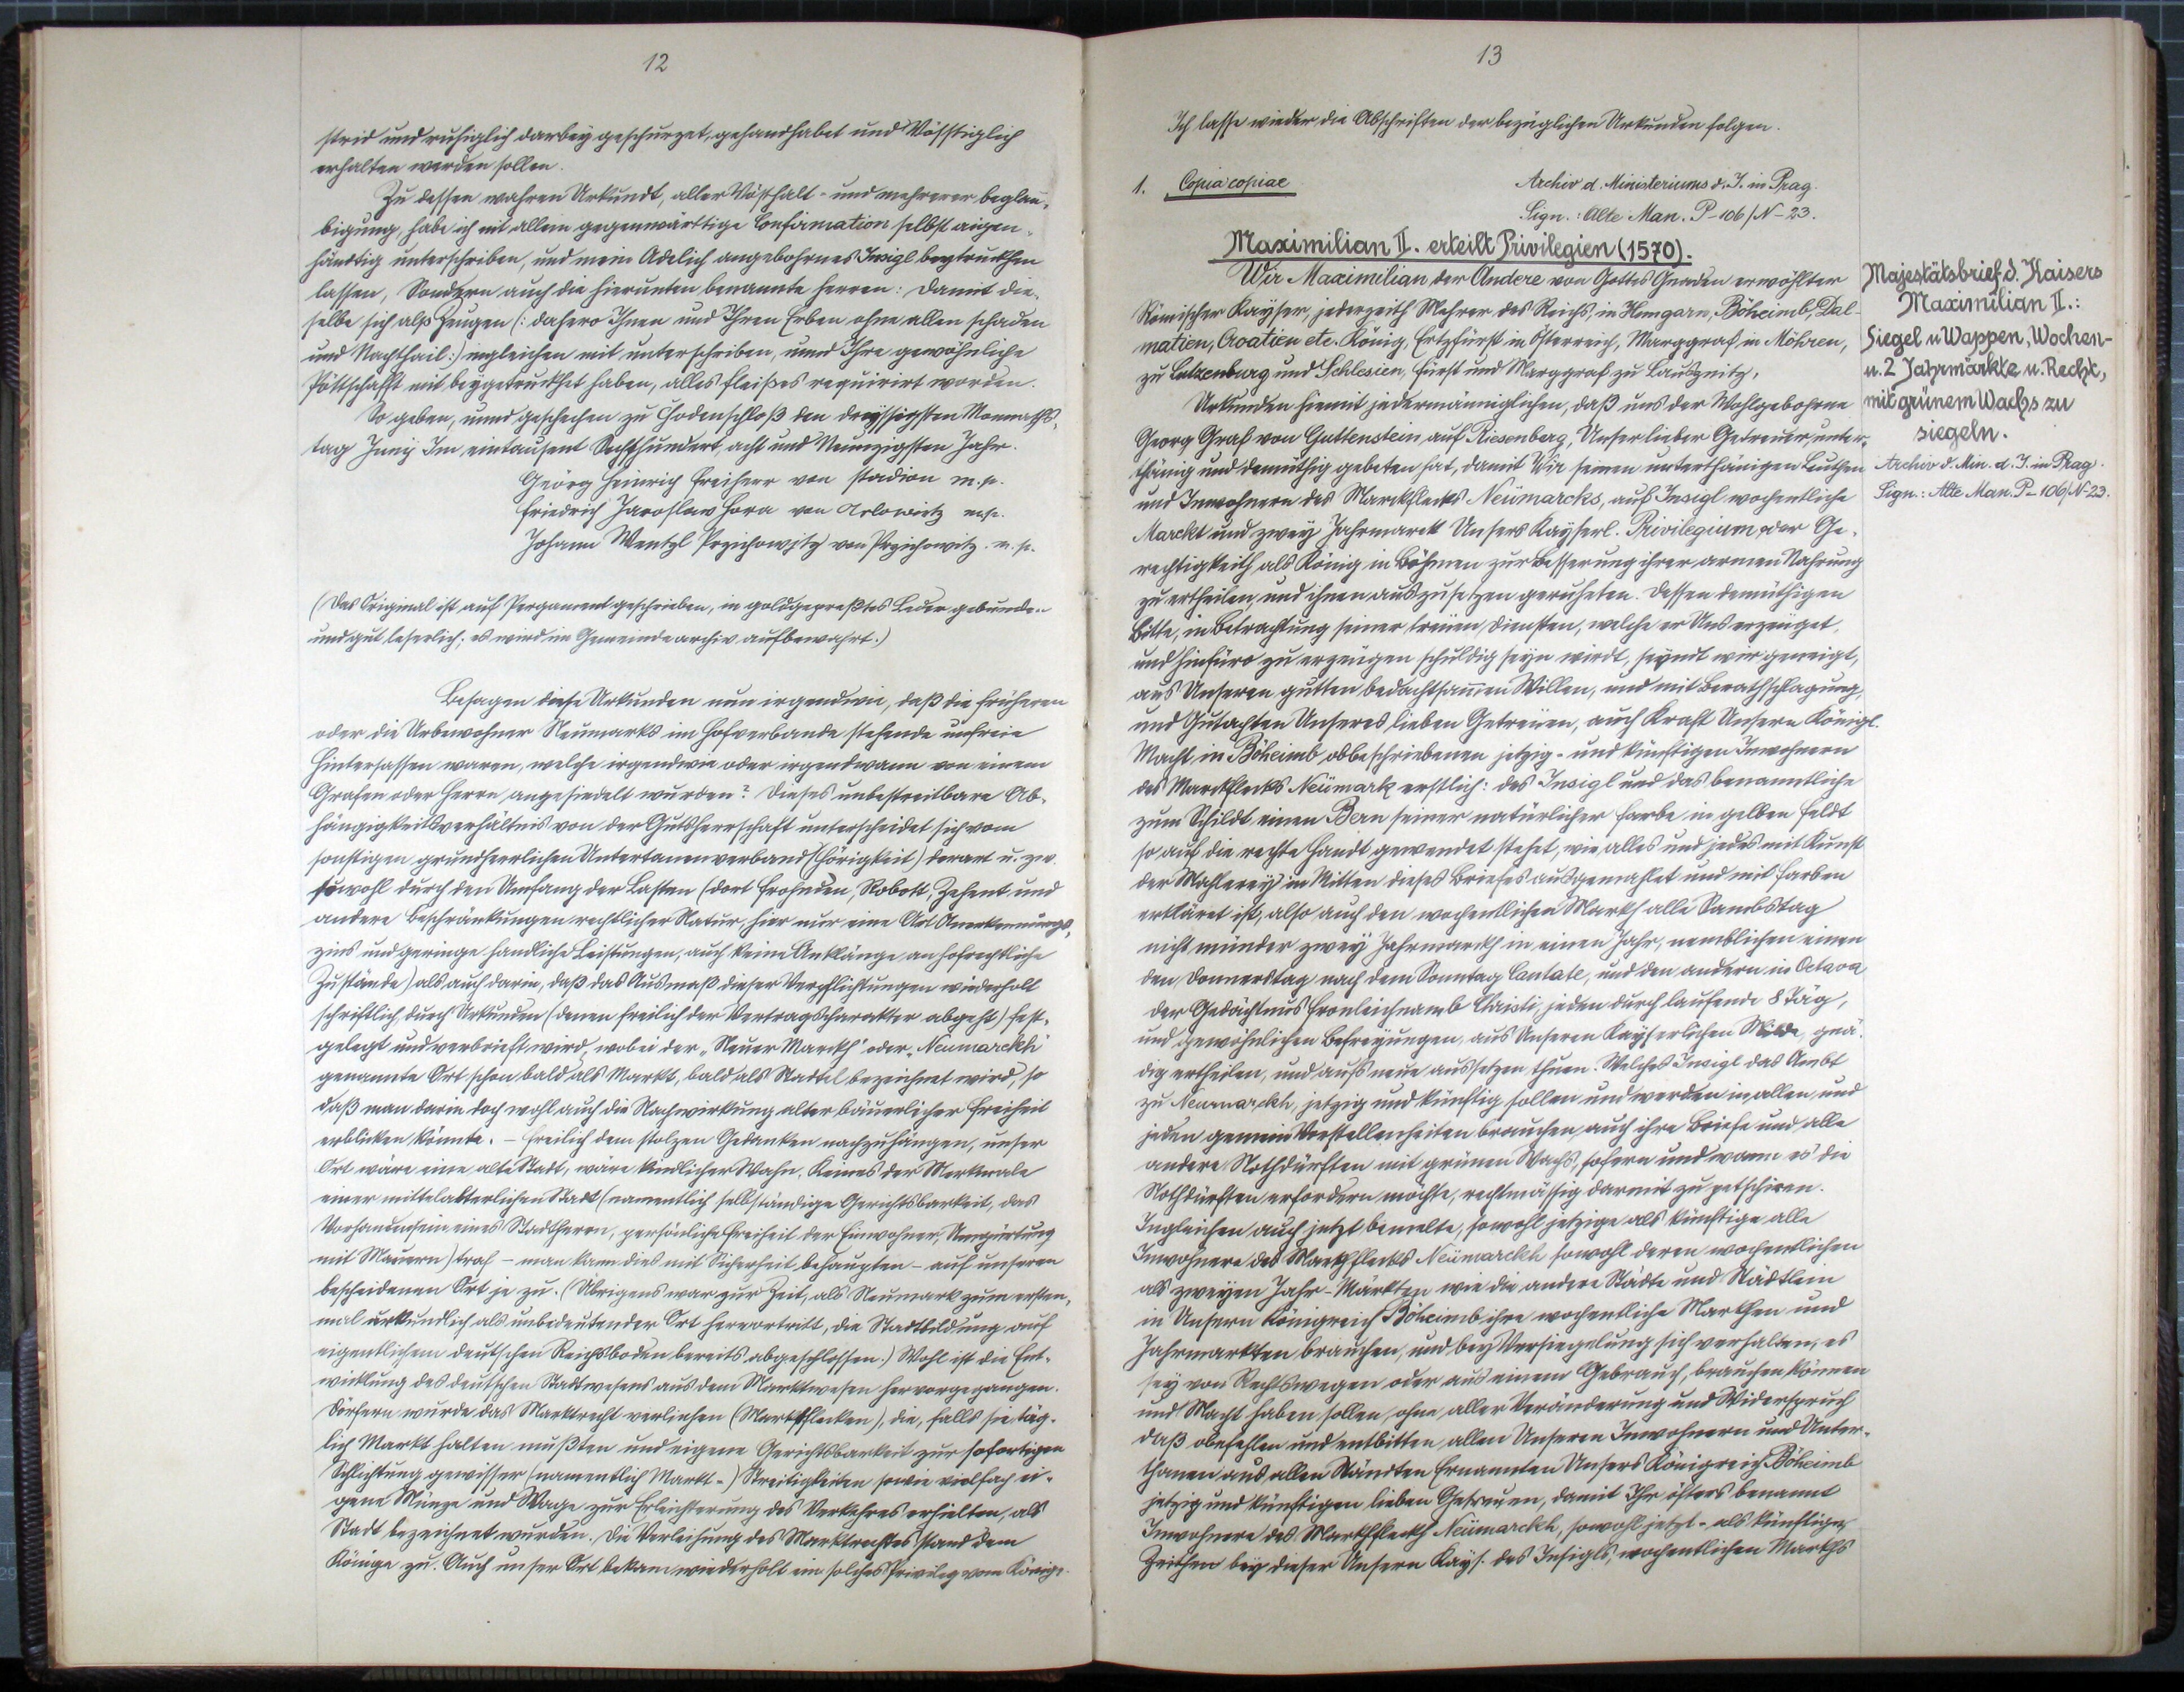 12
strid und ruhiglich darbey geschutzet, gehandhabet und Vösstiglich
erhalten werden sollen.
Zu dessen wahren Urkundt, aller Vösthalt- und mehrerer beglau-
bigung, habe ich nit allein gegenwärttige Confirmation selbst aigen-
händtig unterschrieben, und mein Adelich angebohrnes Insigl beytruckhen
lassen, Sondern auch die hierunten benannte Herren: damit die-
selbe sich alß Zeugen (: dahero Ihnen und Ihren Erben ohne allen schaden
und Nachtheil:) ingleichen mit unterschrieben, unnd Ihre gewöhnliche
Pöttschafft mit beygetruckhet haben, alles fleißes requirirt worden.
So geben, unnd geschechen zu Chodenschloß den dreyssigsten Monnaths-
tag Junij Im eintausent Sechshundert, acht und Neunzigsten Jahr.
Geörg Heinrich Freiherr von Stadion m.p.
Friedrich Jaroslaw Hora von Ozlowitz m.p.
Johann Wentzl Przichowsky von Przichowitz. m.p.
(Das Original ist auf Pergament geschrieben, in goldgepreßtes Leder gebunden
und gut leserlich; es wird im Gemeindearchiv aufbewahrt.)
Besagen diese Urkunden nun irgendwie, daß die früheren
oder die Urbewohner Neumarks im Hofverbande stehende unfreie
Hintersassen waren, welche irgendwie oder irgendwann von einem
Grafen oder Herrn angesiedelt wurden? Dieses unbestreitbare Ab-
hängigkeitsverhältnis von der Gutsherrschaft unterscheidet sich vom
sonstigen grundherrlichen Untertanenverband (Hörigkeit) derart u. zw.
sowohl durch den Umfang der Lasten (dort Frohnden, Robott, Zehent und
andere Beschränkungen rechtlicher Natur, hier nur eine Art Anerkennungs-
zins und geringe handliche Leistungen, auch keine Anklänge an hofrechtliche
Zustände) als auch darin, daß das Ausmaß dieser Verpflichtungen wiederholt
schriftlich durch Urkunden (denen freilich der Vertragscharakter abgeht) fest-
gelegt und verbrieft wird, wobei der „Neuer Marckh" oder „Neumarckh"
genannte Ort schon bald als Markt, bald als Stadtel bezeichnet wird, so
daß man darin doch wohl auch die Nachwirkung alter bäuerlicher Freiheit
erblicken könnte. – Freilich dem stolzen Gedanken nachzuhängen, unser
Ort wäre eine alte Stadt, wäre kindlicher Wahn. Keines der Merkmale
einer mittelalterlichen Stadt (namentlich selbständige Gerichtsbarkeit, das
Vorhandensein eines Stadtherrn, persönliche Freiheit der Einwohner, Umgürtung
mit Mauern) traf – man kann dies mit Sicherheit behaupten – auf unseren
bescheidenen Ort je zu. (Übrigens war zur Zeit, als Neumark zum ersten-
mal urkundlich als unbedeutender Ort hervortritt, die Stadtbildung auf
eigentlichem deutschen Reichsboden bereits abgeschlossen.) Wohl ist die Ent-
wicklung des deutschen Stadtwesens aus dem Marktwesen hervorgegangen.
Dörfern wurde das Marktrecht verliehen (Marktflecken), die, falls sie täg-
lich Markt halten mußten und eigene Gerichtsbarkeit zur sofortigen
Schlichtung gewisser (namentlich Markt-) Streitigkeiten sowie vielfach ei-
gene Münze und Wage zur Erleichterung des Verkehres erhielten, als
Stadt bezeichnet wurden. Die Verleihung des Marktrechtes stand dem
Könige zu. Auch unser Ort bekam wiederholt ein solches Privileg vom Könige.
13
Ich lasse wieder die Abschriften der bezüglichen Urkunden folgen.
1. Copia copiae
Archiv d. Ministeriums d. I. in Prag.
Sign.: Alte Man. P-106/N-23.
Maximilian II. erteilt Privilegien (1570).
Wir Maximilian der Andere von Gottes Gnaden erwöhlter
Römischer Kayser, jederzeith Mehrer des Reichs, in Hungarn, Böheimb, Dal-
matien, Croatien etc. König, Ertzfürst in Österreich, Marggraf in Möhren,
zu Lutzenburg und Schlesien, Fürst und Marggraf zu Laußnitz,
Urkunden hiemit jedermänniglichen, daß uns der Wohlgebohrne
Georg Graf von Guttenstein auf Riesenberg, Unser lieber Getreuer, unter-
thänig und demüthig gebeten hat, damit Wir seinen unterthänigen Leuthen
und Inwohnern des Marckflecks Neümarcks, auf Insigl wochentliche
Marckt und zwey Jahrmarckt Unsers Kayserl. Privilegium oder Ge-
rechtigkeith als König in Böhmen zur Besserung ihrer armen Nahrung
zu ertheilen und ihnen auszusetzen geruheten. Dessen demüthigen
Bitte, in Betrachtung seiner treuen Diensten, welche er Uns erzeuget,
und hinfüro zu erzeugen schuldig seyn wirdt, seyndt wir geneigt,
aus Unseren gutten bedachtsamen Willen, und mit Berathschlagung,
und Gutachten Unseres lieben Getreuen, auch Kraft Unsern Königl.
Macht in Böheimb obbeschriebenen jetzig- und künftigen Inwohnern
des Marckflecks Neümark erstlich: des Insigl und das benanntliche
zum Schildt einen Bern seiner natürlicher Farbe in gelben Feldt
so auf die rechte Handt gewendet stehet, wie alles und jedes mit Kunst
der Mahlerey in Mitten dieses Briefes ausgemahlet und mit Farben
erkläret ist, also auch den wochentlichen Markh alle Sambstag
nicht münder zwey Jahrmarckh in einen Jahr, nemblichen einen
den Donnerstag nach dem Sonntag Cantate, und den andern in Octava
der Gedächtnus Fronleichnamb Christi, jeden durch laufende 8 Täg,
und gewöhnlichen Befreyungen, aus Unseren Kayserlichen Milde, gnä-
dig ertheilen, und aufs neue aussetzen thuen. Welches Insigl das Ambt
zu Neumarckh, jetzig und künftig sollen und werden in allen und
jeden gemein Vorstellenheiten brauchen, auch ihre Briefe und alle
andere Nothdürften mit grünen Wachs, sofern und wann es die
Nothdürften erfordern möchte, rechtmässig darmit zu petschiren.
Ingleichen auch jetzt bemelte, sowohl jetzige als künftige alle
Inwohnere des Markhflecks Neümarckh sowohl deren wochentlichen
als zweyen Jahr-Märkten wie die andere Städte und Städtlein
in Unsern Königreich Böheimb ihre wochentliche Markhen und
Jahrmarkten brauchen, und bey Versiegelung sich verhalten, es
sey von Rechtswegen oder aus einem Gebrauch, brauchen können
und Macht haben sollen, ohne aller Veränderung und Widerspruch
daß obefehlen und entbitten, allen Unseren Inwohnern und Unter-
thanen aus allen Ständten Ernannten Unsers Königreich Böheimb
jetzig und künftigen lieben Getreuen, damit Ihr öfters benannt
Inwohnere des Markhfleckh Neümarckh, sowohl jetzt- als künftigen
Zeithen bey dieser Unsern Kays. des Insigls, wochentlichen Markhs
Majestätsbrief d. Kaisers
Maximilian II.:
Siegel u Wappen, Wochen-
u. 2 Jahrmärkte u. Recht,
mit grünem Wachs zu
siegeln.
Archiv d. Min. d. I. in Prag.
Sign.: Alte Man. P-106/N-23.